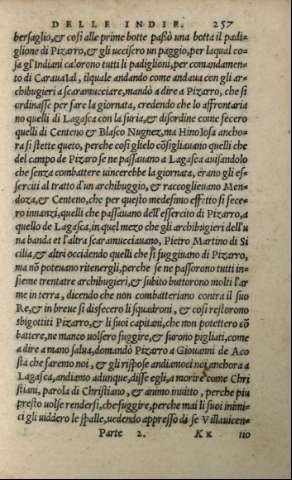 DELLE INDIE. 257
bersaglio,& così alle prime botte passò una botta il padi-
glione di Pizarro,& gli uccisero un paggio,per laqual co-
sa gl'Indiani ca'orono tutti li padiglioni,per comandamen
to di Caruaial, ilquale andando come andaua con gli ar-
chibugieri a scaramucciare,mandò a dire a Pizarro, che si
ordinasse per fare la giornata, credendo che lo affrontaria
no quelli di Lagasca con la furia,& disordine come fecero
quelli di Centeno & Blasco Nugnez,ma Hinoiosa ancho-
ra si stette queto, perche così glielo cōsigliauano quelli che
del campo de Pizaro se ne passauano a Lagasca auisandolo
che senza combattere uincerebbe la giornata, erano gli es-
serciti al tratto d'un archibuggio,& raccoglieuano Men-
doza,& Centeno,che per questo medesimo effetto si fece-
ro innanzi,quelli che passauano dell'essercito di Pizarro,a
quello de Lagasca,in quel mezo che gli archibugieri dell'u
na banda et l'altra scaramucciauano, Pietro Martino di Si
cilia,& altri occidendo quelli che si fuggiuano di Pizarro,
ma nō poteuano ritenergli,perche se ne passorono tutti in-
sieme trentatre archibugieri,& subito buttorono molti l'ar
me in terra , dicendo che non combatteriano contra il suo
Re,& in breue si disfecero li squadroni , & così restorono
sbigottiti Pizarro,& li suoi capitani,che non potettero cō
battere,ne manco uolsero fuggire,& furono pigliati,come
a dire a mano salua,domandò Pizarro a Giouanni de Aco
sta che faremo noi , & gli rispose andiamoci noi anchora a
Lagasca,andiamo adunque,disse egli,a morire come Chri
stiani, parola di Christiano , & animo inuitto , perche piu
presto uolse rendersi,che fuggire,perche mai li suoi inimi-
ci gli uiddero le spalle,uedendo appresso di se Villauicen-
Parte 2. Kx no